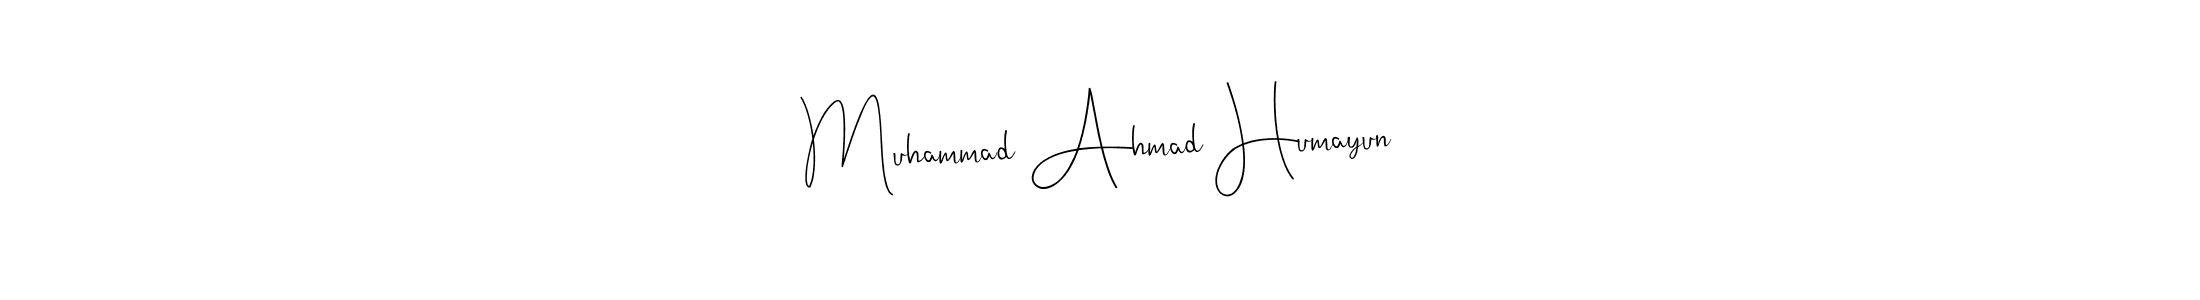 Muhammad Ahmad Humayun